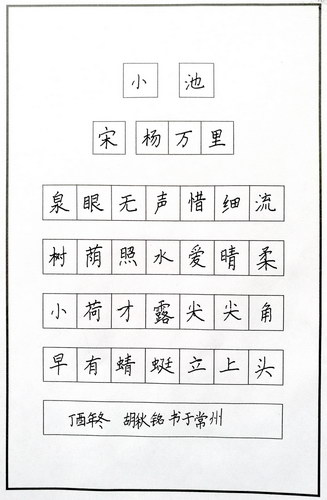 小池
宋 杨万里
泉眼无声惜细流
树荫照水爱晴柔
小荷才露尖尖角
早有蜻蜓立上头
丁酉年冬 胡秋铭书于常州